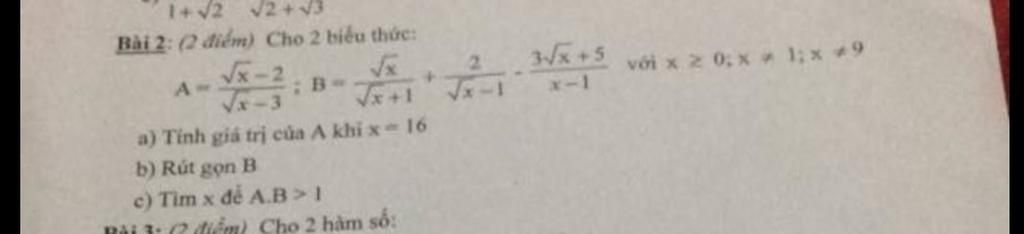 1+√2 √2+√3
Bài 2: (2 điểm) Cho 2 biểu thức:
A = (√x − 2)/(√x − 3); B = √x/(√x + 1) + 2/(√x − 1) - (3√x + 5)/(x − 1) với x ≥ 0; x ≠ 1; x ≠ 9
a) Tính giá trị của A khi x = 16
b) Rút gọn B
c) Tìm x để A.B > 1
Bài 3: (2 điểm) Cho 2 hàm số: